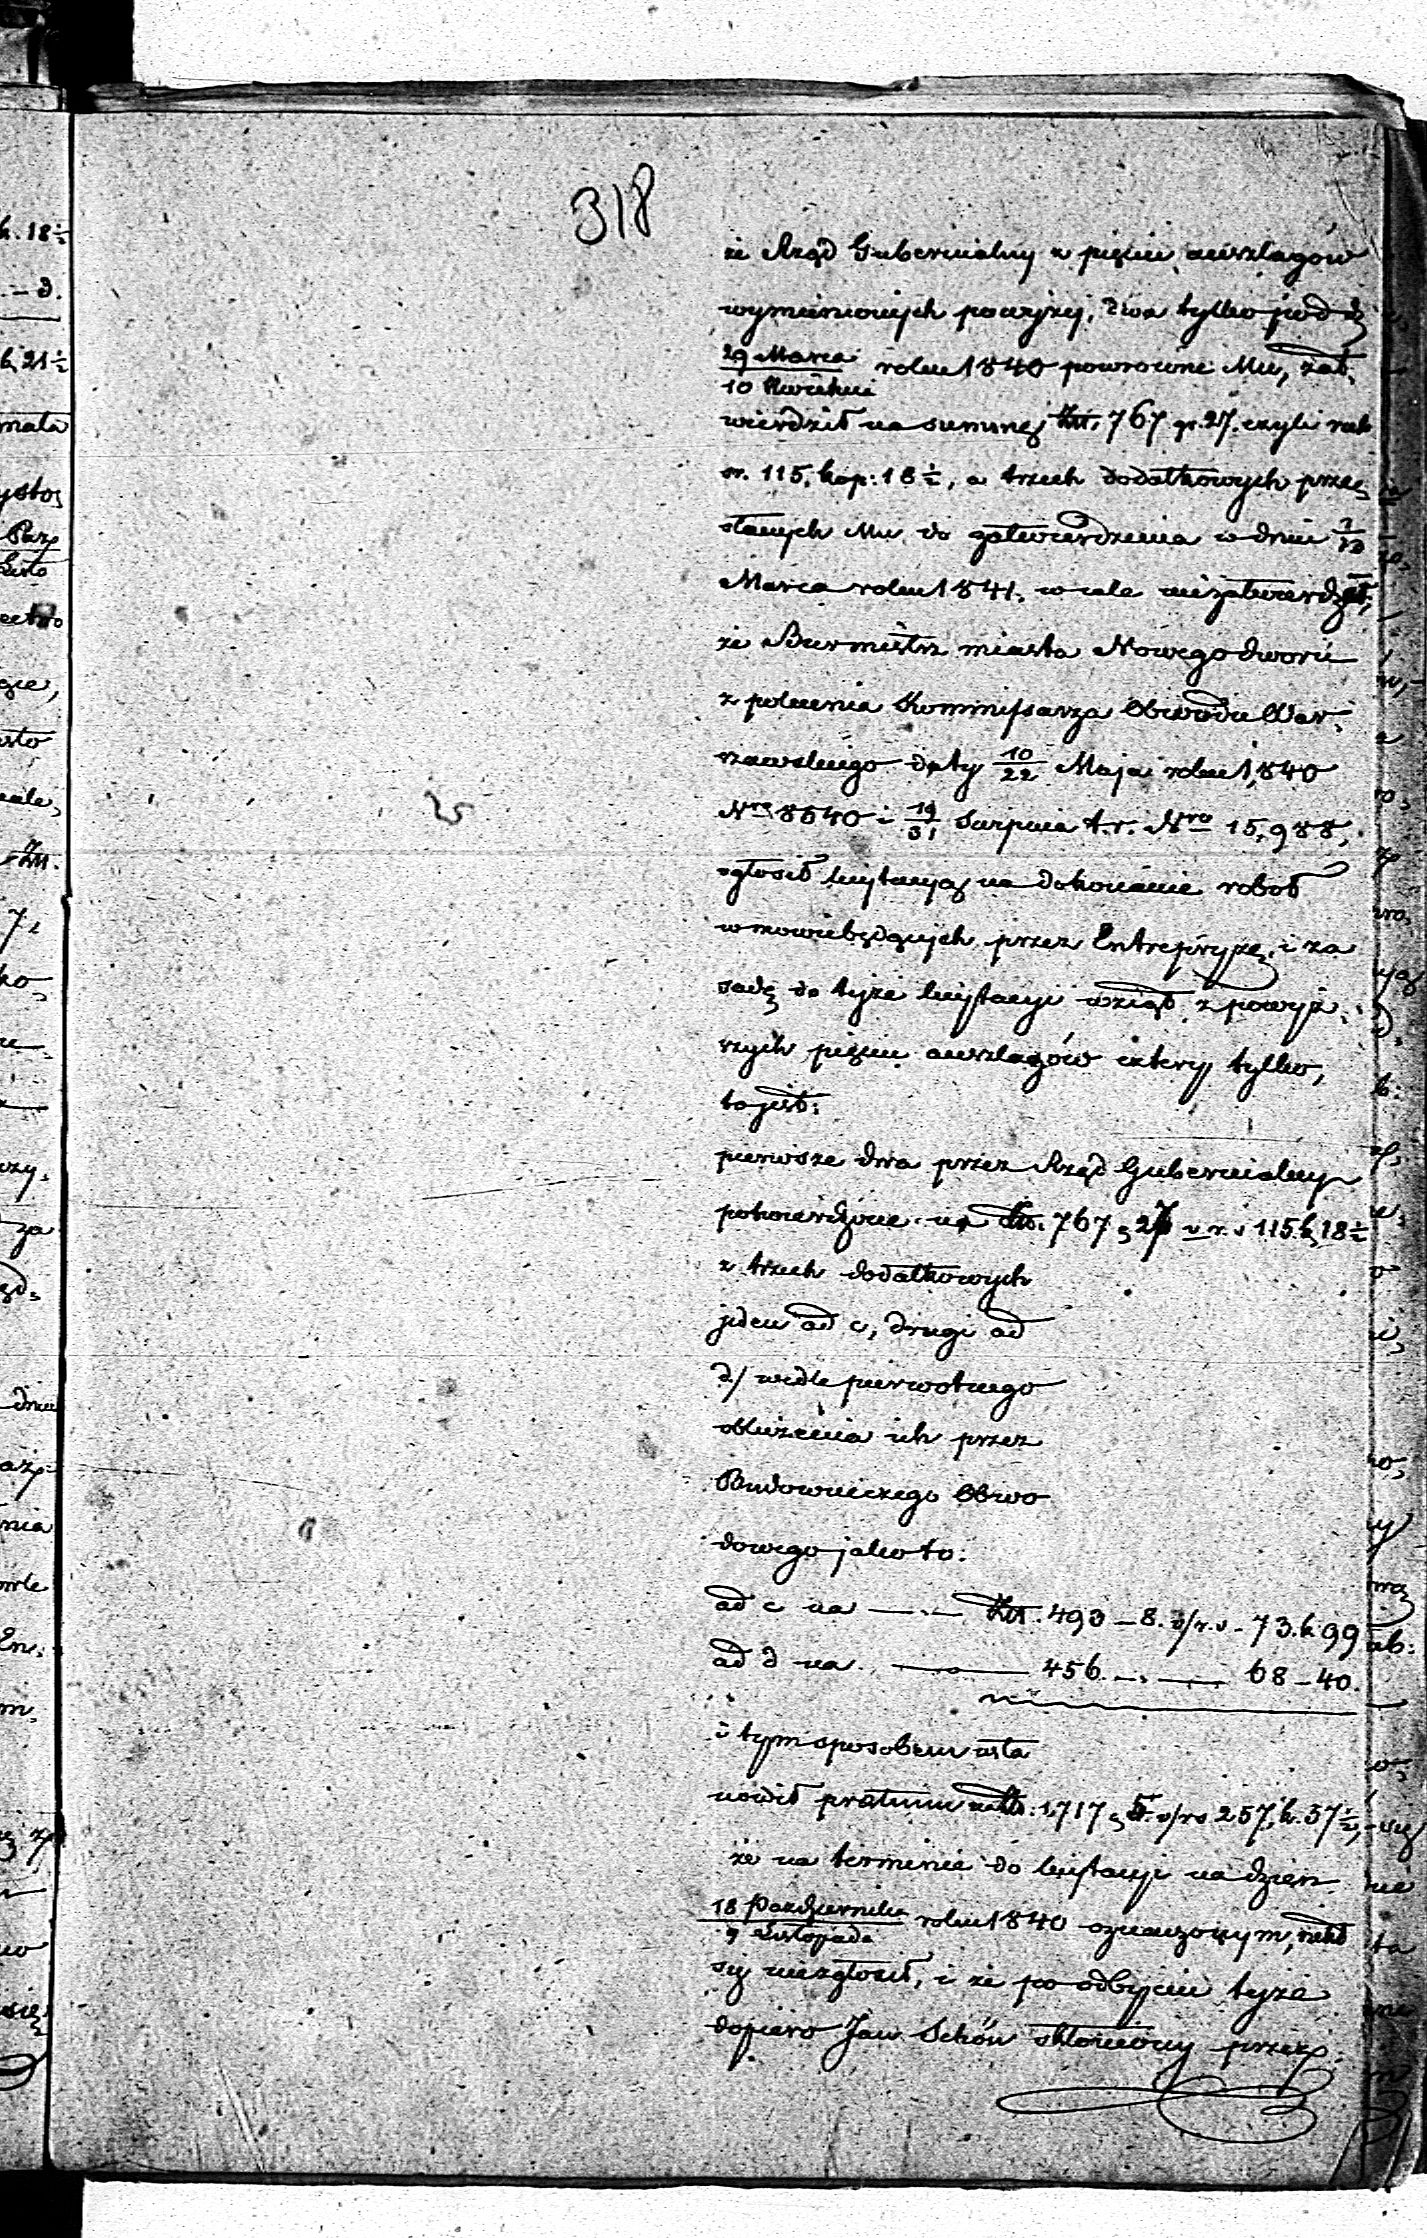 318
że Rząd Gubernialny z pięciu anszlagów
wymienionych powyżej, dwa tylko pod d.
29 Marca / 10 Kwietnia roku 1840 powrócone Mu, zat,
wierdził na summę Złt. 767 gr. 27. czyli rub
sr. 115, kop: 18 ½, a trzech dodatkowych prze,
słanych Mu do zatwierdzenia w dniu
Marca roku 1841. wcale niezatwierdził,
że Burmistrz miasta Nowegodworu
z polecenia Kommissarza Obwodu War,
szawskiego daty 10/22 Maja roku 1840
Nro 8640 i 19/31 Sierpnia t.r. Nro 15,988,
ogłosił licytacyą na dokonanie robót
w mowie będących przez Entrepryzę, i za
sadę do tejże licytacyi wziął z powyż,
szych pięciu anszlagów cztery tylko,
to jest:
pierwsze dwa przez Rząd Gubernialny
potwierdzone na Złt. 767 g 27 v. r. s 115 k, 18 ½
z trzech dodatkowych
jeden ad c, drugi ad
d/ wedle pierwotnego
obliczenia ich przez
Budowniczego Obwo
dowego jako to:
ad c na —.— Złt. 493 — 8. v/r. s - 73. k 99
ad d na. —— 456. —.—— 68 — 40.
i tym sposobem usta
nowił praetium Złt: 1,717 g 8. v/rs 257, k. 37 ½,
że na terminie do licytacyi na dzień
18 Października / 9 Listopada roku 1840 oznaczonym, nikt
się niezgłosił, i że po odbyciu tejże
dopiero Jan Schön skłoniony przez